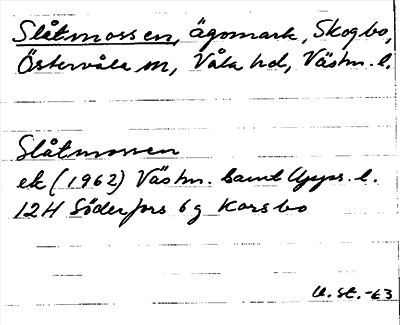 Slåtmossen, ägomark, Skogbo,
Östervåla sn, Våla hd, Västm. l.
Slåtmossen
ek (1962) Västm. samt Upps. l.
12H Söderfors 6g Karsbo
U. st. -63